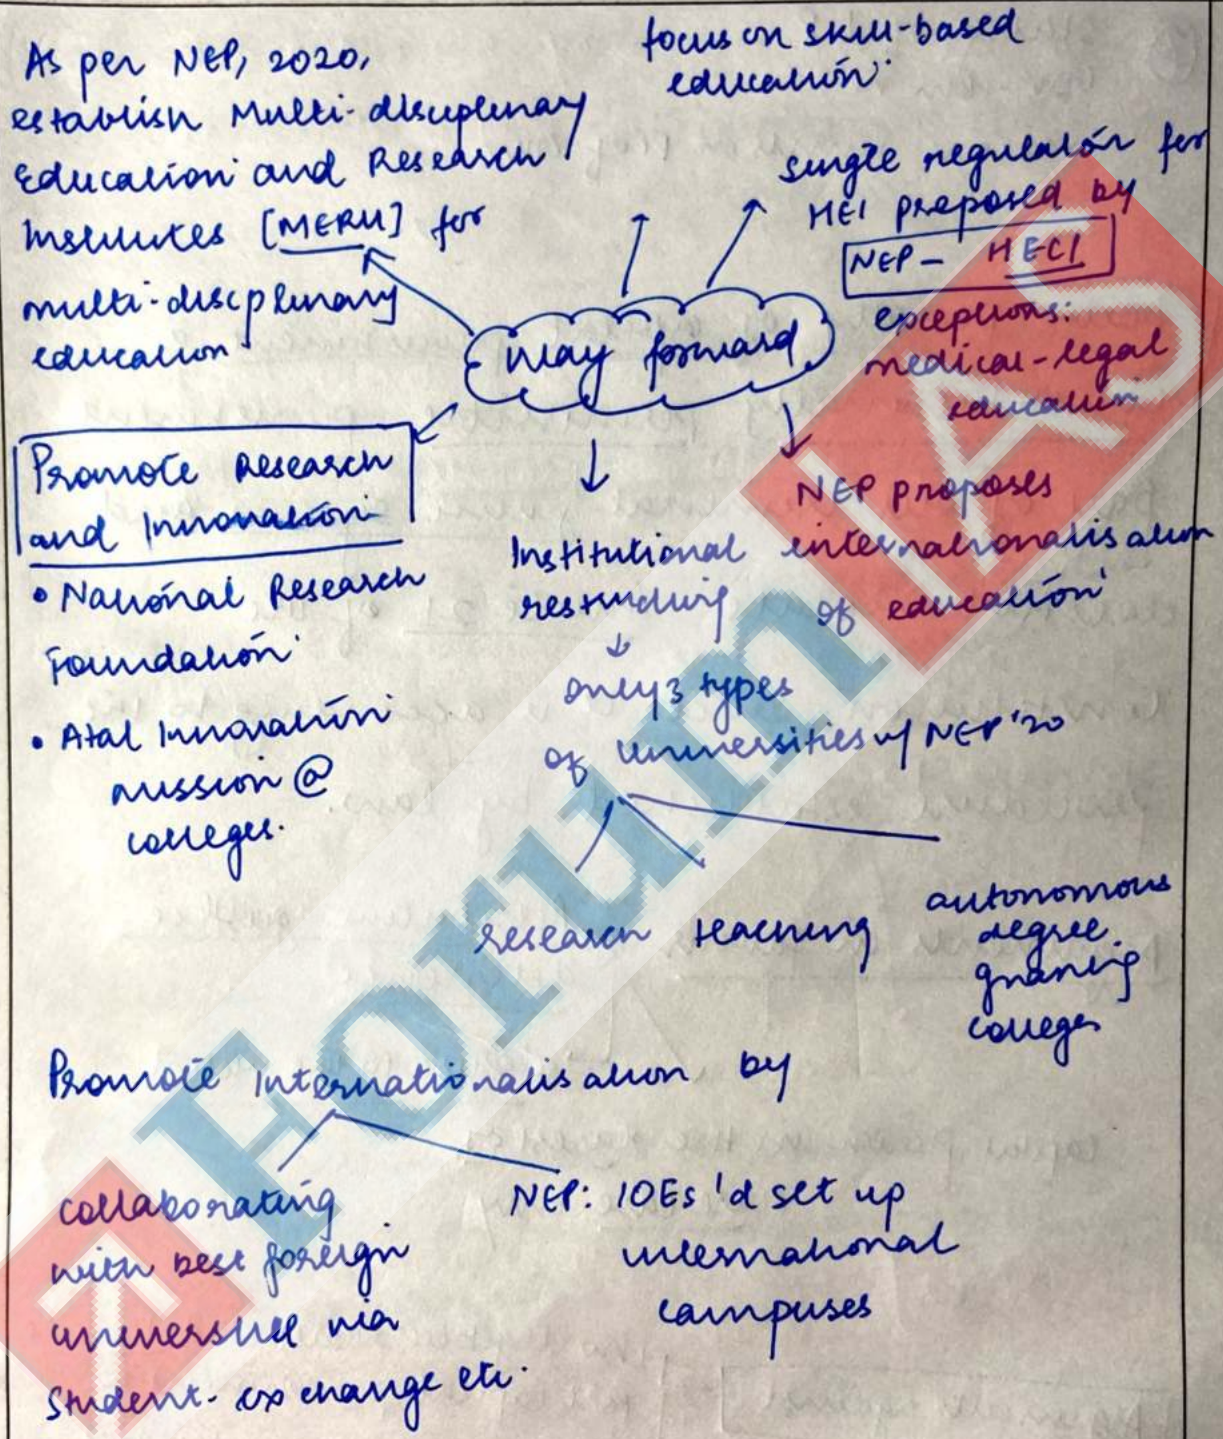 As per NEP, 2020,
establish Multi-disciplinary
Education and Research
Institutes [MERU] for
multi-discplinary
education
focus on skill-based
education.
single regulator for
HEI proposed by
NEP - HECI
exceptions:
medical-legal
education
way forward
Promote Research
and Innovation
• National Research
Foundation
• Atal Innovation
mission @
colleges.
Institutional
restructuring
↓
only 3 types
of universities w/ NEP '20
research
teaching
autonomous
degree
granting
colleges
NEP proposes
internationalisation
of education
Promote Internationalisation by
collaborating
with best foreign
via
Student-exchange etc.
NEP: IOEs 'd set up
international
campuses
Forum IAS